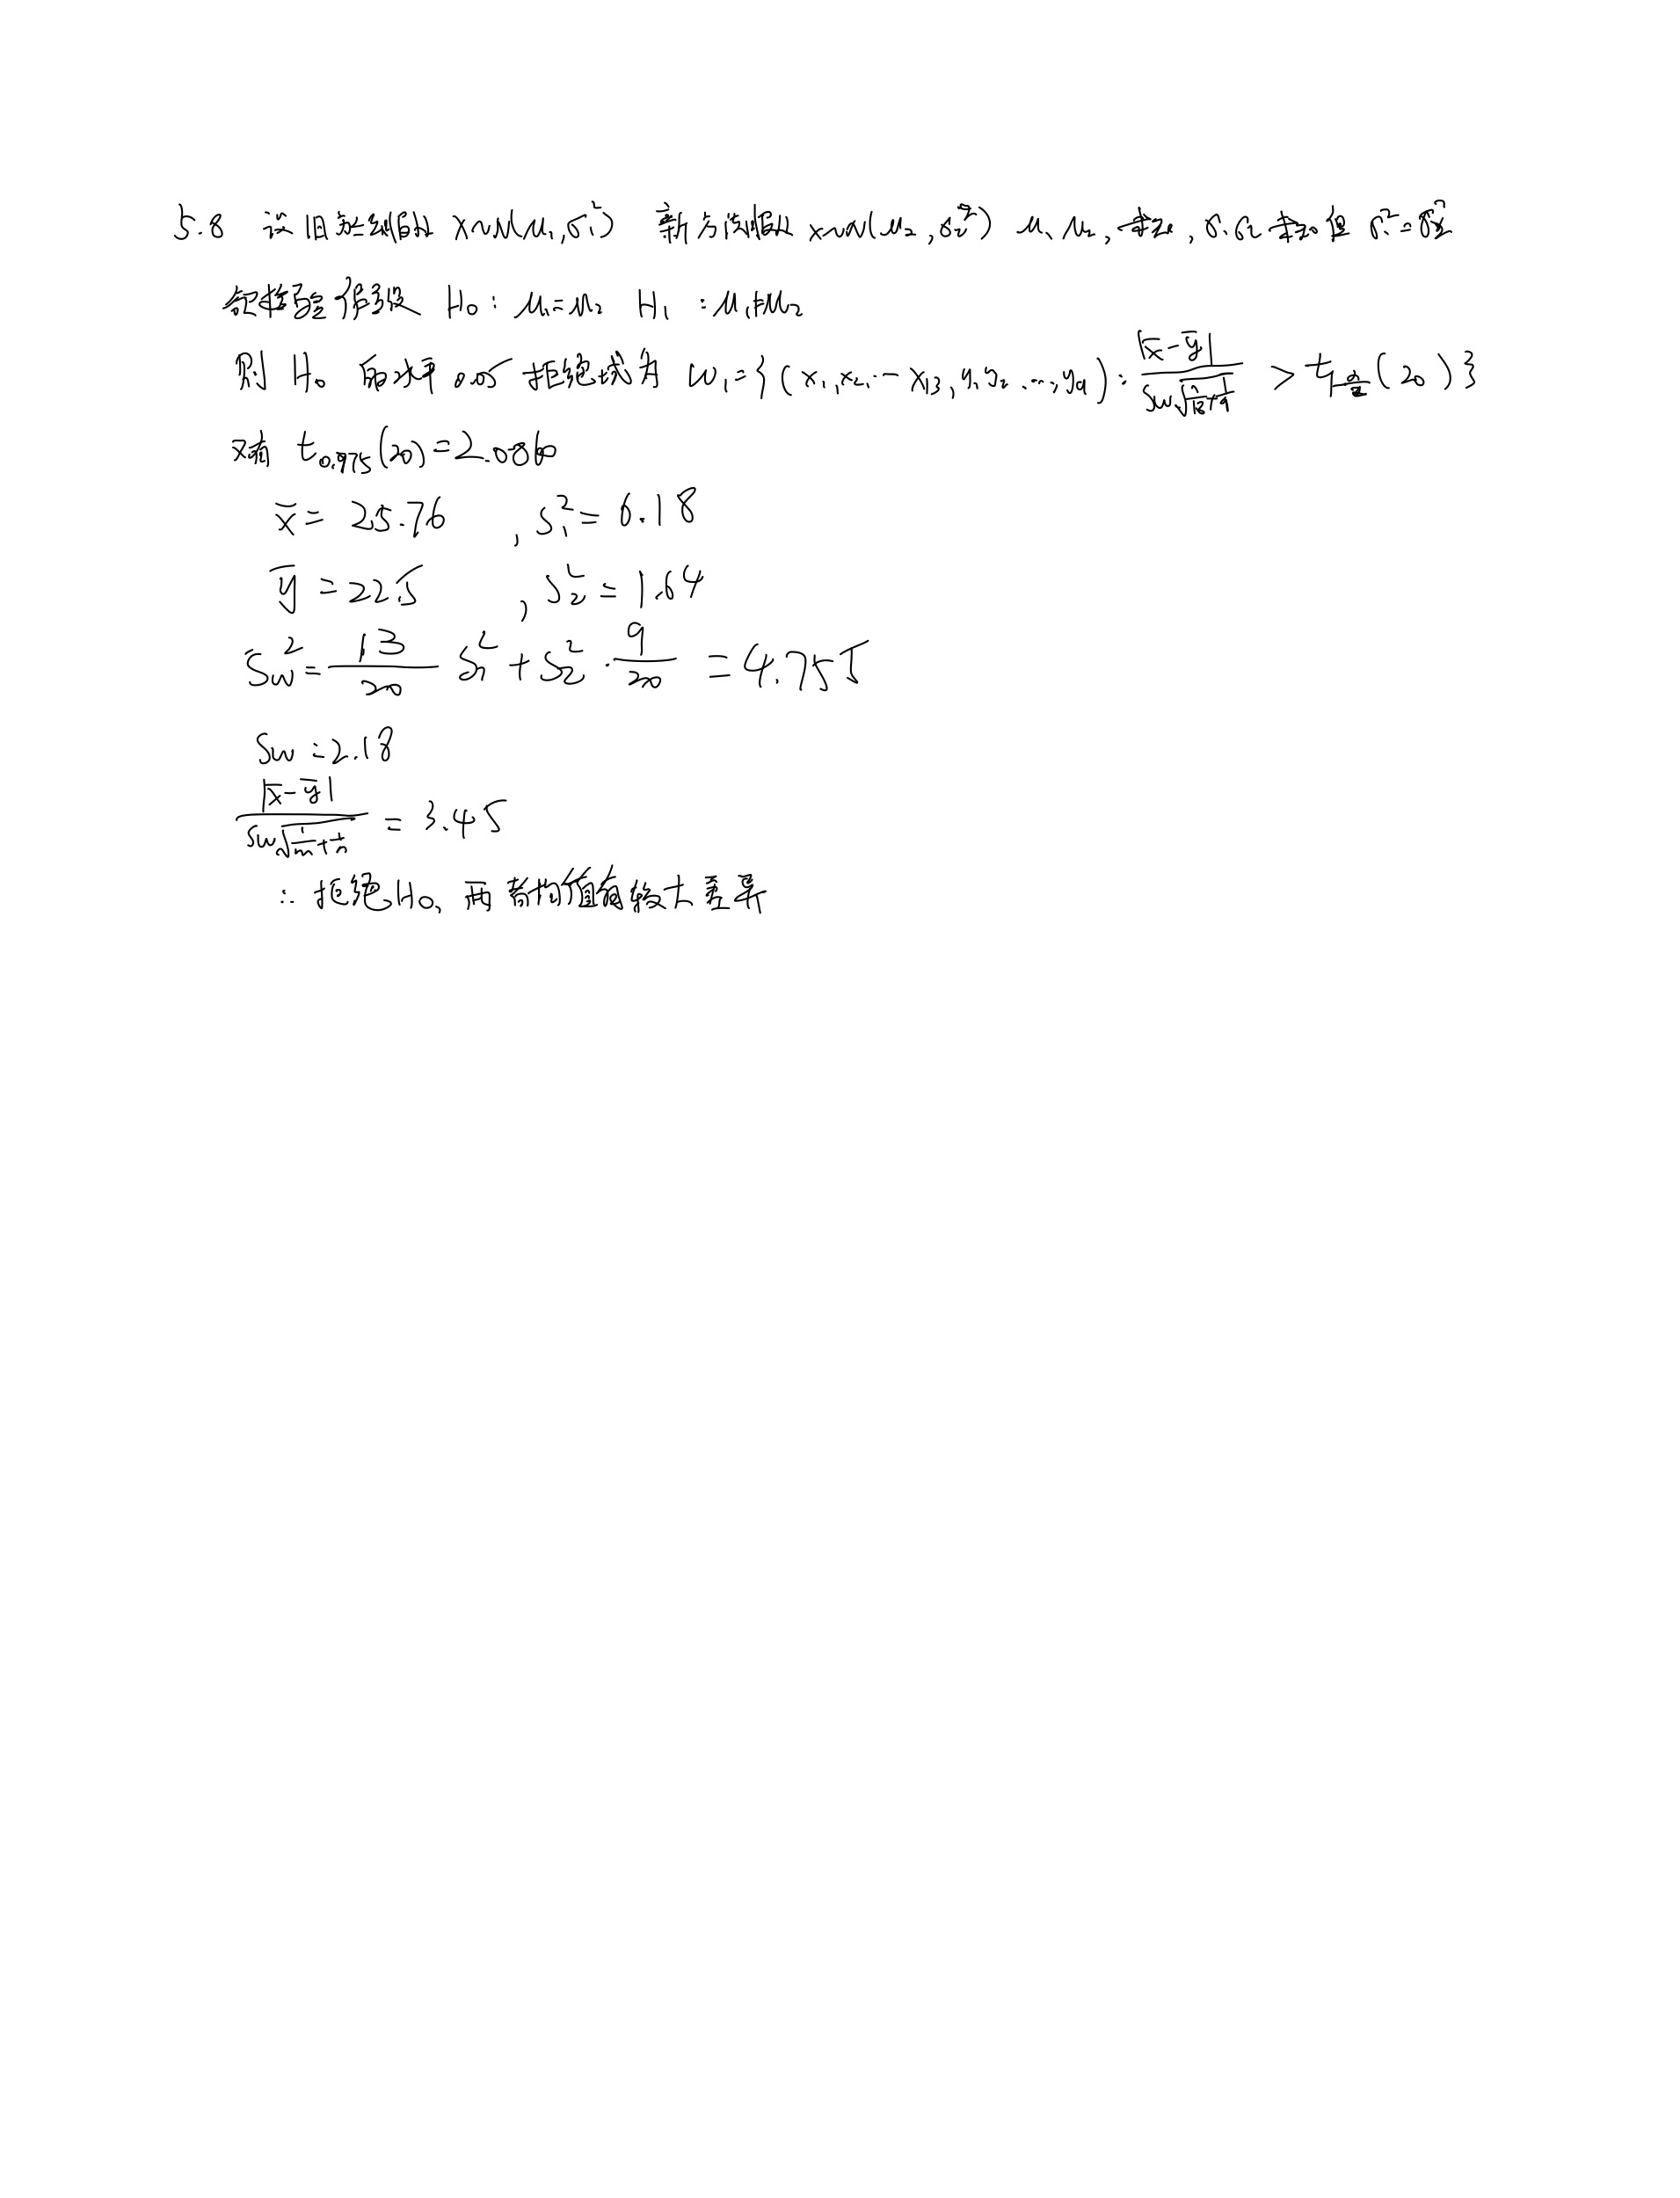 5.8 设旧方法组份 X~N(μ₁,σ₁²) 新方法组份 X~N(μ₂,σ₂²) μ₁ μ₂, 未知, σ₁ σ₂ 未知 但 σ₁²=σ₂²
欲检验假设 H₀: μ₁=μ₂ H₁: μ₁≠μ₂
则 H₀ 的水平 0.05 拒绝域为 W₁={(x₁,x₂,…x₁₃,y₁y₂…,y₉): |x̄-ȳ|/(Sw√(1/13+1/9)) > t_{1-α/2}(20)}
又有 t₀.₉₇₅(20)=2.0860
x̄= 25.76 , S₁²=6.18
ȳ=22.5 , S₂²=1.64
Sw²=13/20 S₁²+S₂²·9/20 =4.755
Sw=2.18
|x̄-ȳ|/(Sw√(1/m+1/n)) = 3.45
∴ 拒绝H₀, 两者均值有较大差异